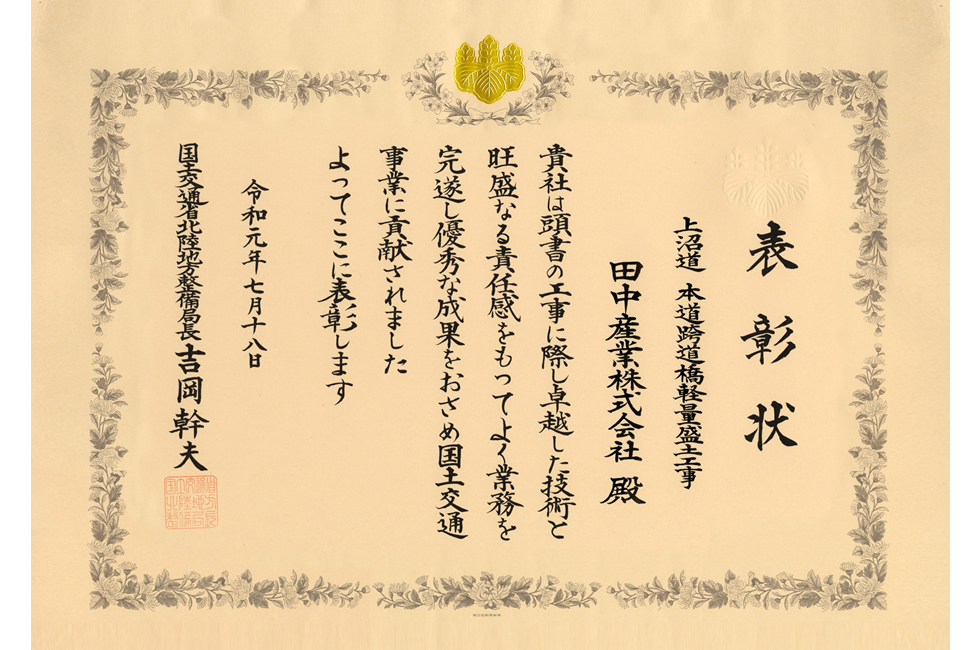 表彰状
上沼道 本道跨道橋軽量盛土工事
田中産業株式会社 殿
貴社は頭書の工事に際し卓越した技術と
旺盛なる責任感をもってよく業務を
完遂し優秀な成果をおさめ国土交通
事業に貢献されました
よってここに表彰します
令和元年七月十八日
国土交通省北陸地方整備局長 吉岡幹夫